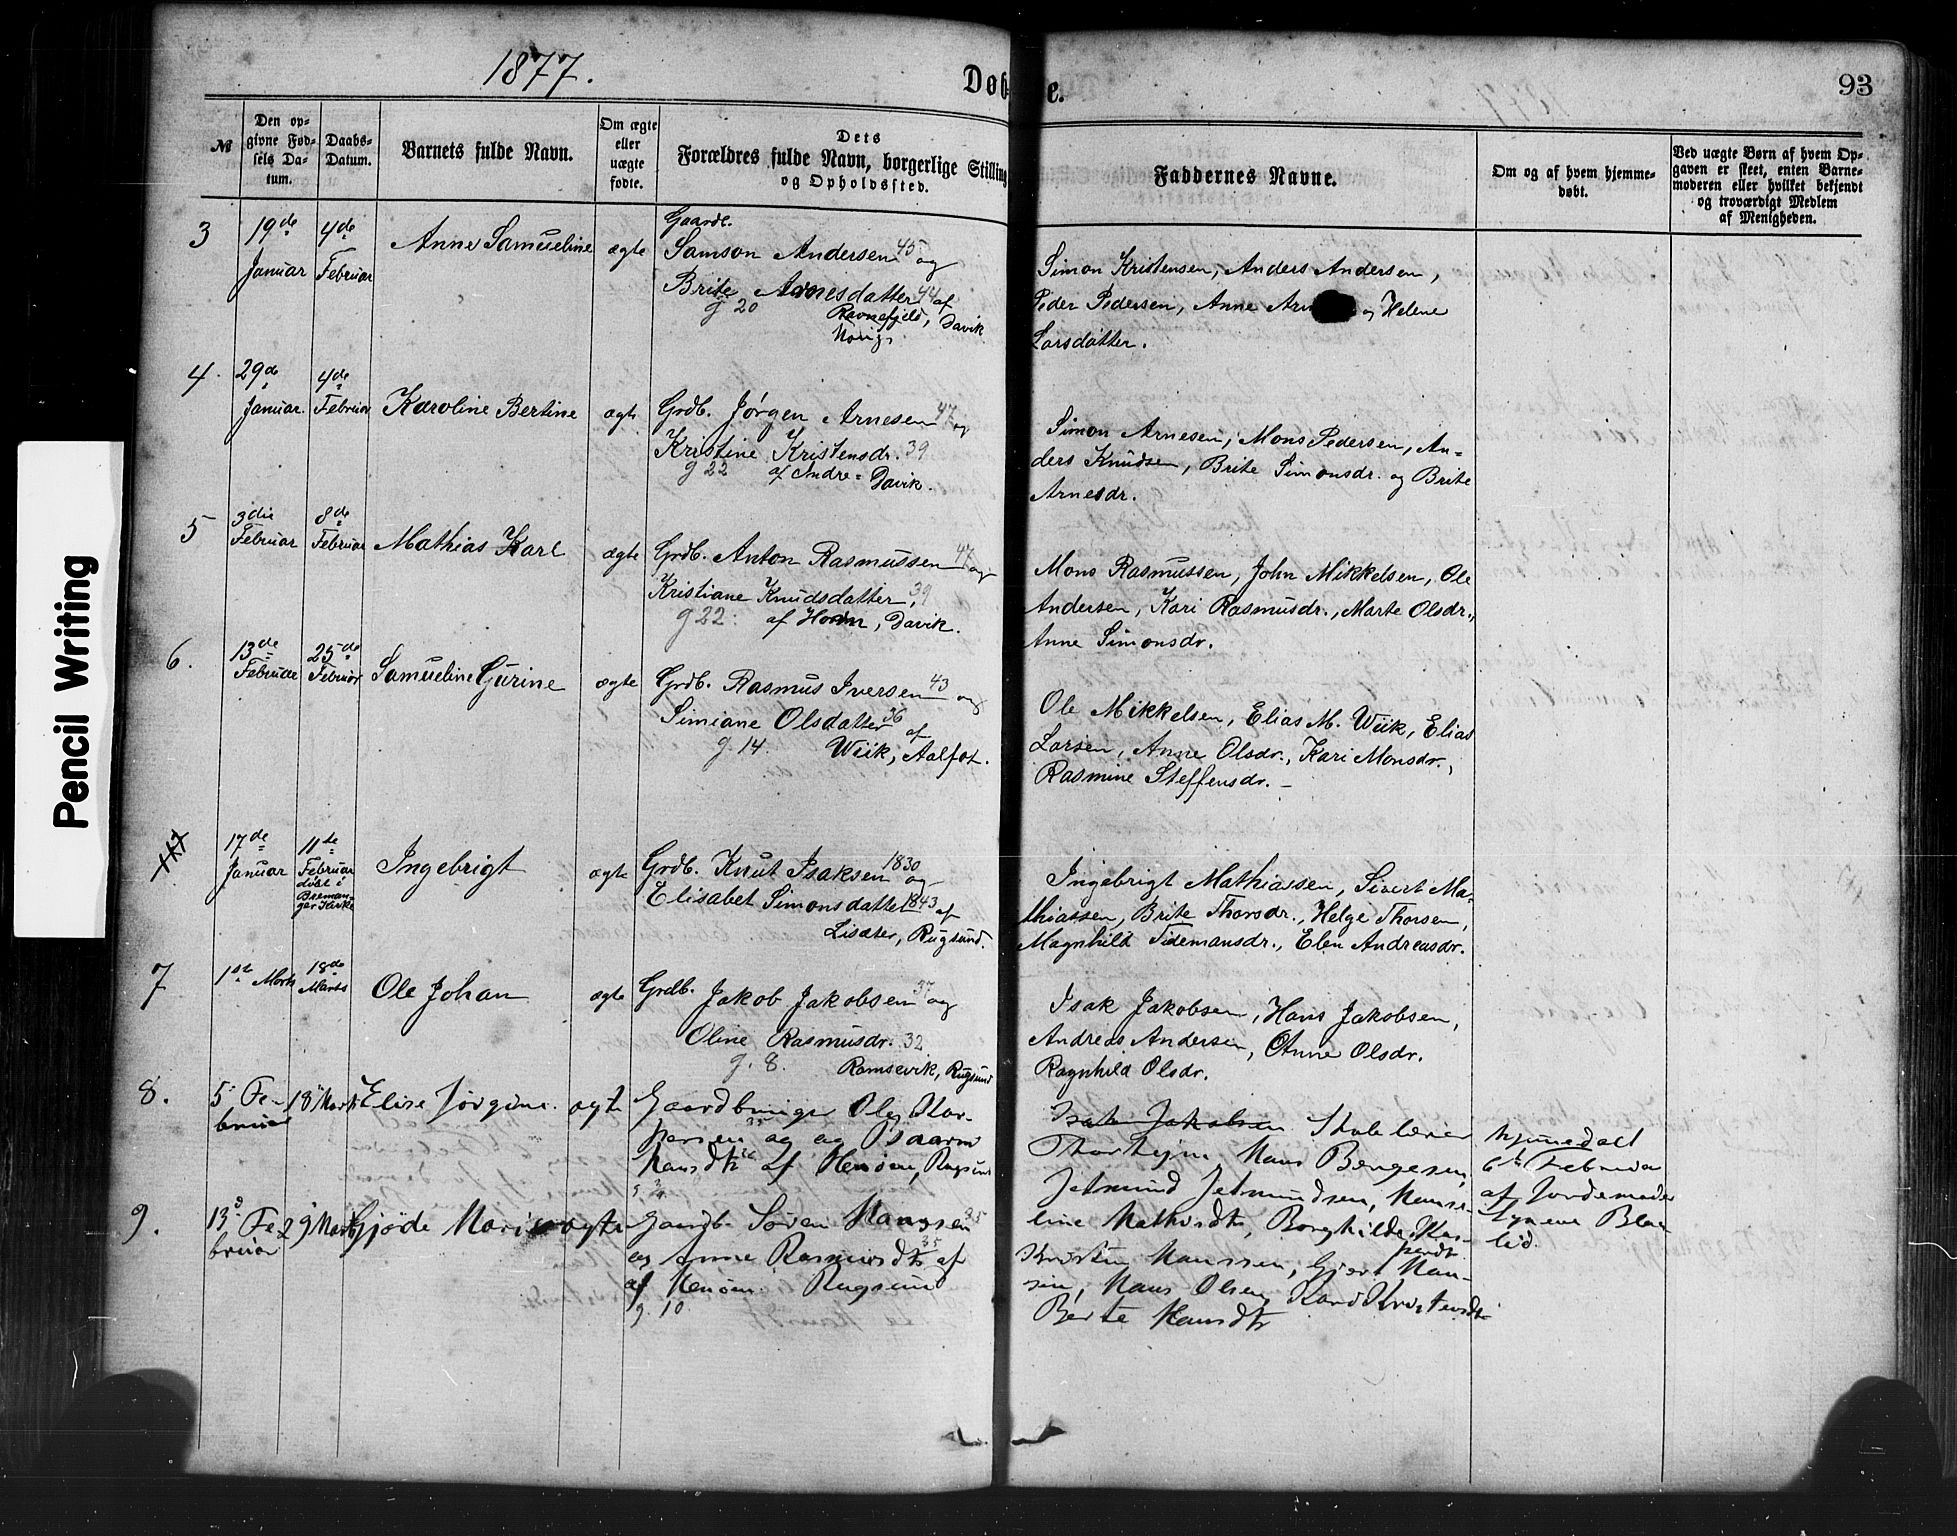 1877.
Døbte.
93
№
Den op-
givne Fød-
sels Da-
tum.
Daabs-
Datum.
Barnets fulde Navn.
Om ægte
eller
uægte
fødte.
Dets
Forældres fulde Navn, borgerlige Stilling
og Opholdssted.
Faddernes Navne.
Om og af hvem hjemme-
døbt.
Ved uægte Børn af hvem Op-
gaven er skeet, enten Barne-
moderen eller hvilket bekjendt
og troværdigt Medlem
af Menigheden.
3
19de
Januar
4de
Februar
Anne Samueline
ægte
Gaardb.
Samson Andersen 45 og
Brite Arnesdatter 44 af
g 20 Ravnefjeld, Davik
Simon Kristensen, Anders Andersen,
Peder Pedersen, Anne og Helene
Larsdatter.
4.
29de
Januar.
4de
Februar
Karoline Bertine
ægte
Grdb. Jørgen Arnesen 47 og
Kristine Kristensdr. 39
g 22 af Indre-Davik.
Simon Arnesen, Mons Pedersen, An-
ders Knudsen, Brite Simonsdr. og Brite
Arnesdr.
5
3die
Februar
8de
Februar
Mathias Karl
ægte
Grdb. Anton Rasmussen 47 og
Kristiane Knudsdatter, 39
g 22. af Hovn, Davik.
Mons Rasmussen, John Mikkelsen, Ole
Andersen, Kari Rasmusdr., Marte Olsdr.,
Anne Simonsdr.
6.
13de
Februar
25de
Februar
Samueline Gurine
ægte
Grdb. Rasmus Iversen 43 og
Simiane Olsdatter 36 af
g 14. Wiik, Aalfot.
Ole Mikkelsen, Elias M. Wiik, Elias
Larsen, Anne Olsdr., Kari Monsdr.,
Rasmine Steffensdr. –
17de
Januar
11te
Februar
døbt i
Breman-
ger Kirke
Ingebrigt
ægte
Grdb. Knut Isaksen 1830 og
Elisabet Simonsdatter 1843 af
Lisæter, Rugsund.
Ingebrigt Mathiassen, Sivert Ma-
thiassen, Brite Thorsdr., Helge Thorsen,
Magnhild Tidemansdr., Elen Andreasdr.
7
1ste Marts
18de
Marts
Ole Johan
ægte
Grdb. Jakob Jakobsen 37 og
Oline Rasmusdr. 32
g. 8. Ramsevik, Rugsund
Isak Jakobsen, Hans Jakobsen,
Andreas Andersen, Anne Olsdr.
Ragnhild Olsdr.
8.
5 Fe-
bruar
18 Marts
Elise Jørgine.
ægte
Gaardbruger Ole Kas-
persen 35 og og
Hansdtr af Henøen, Rugsund
Isak Jakobsen Skolelærer
Hans Bengesen,
Jetmund Jetmundsen, Hanse-
line Borghilde Kas-
persdtr
hjemmedøbt
6te Februar
af Jordemoder
lid.
9.
13d Fe-
bruar
29 Marts
Gjøde Marie
ægte
Gaardb. Søren Hanssen 35
og Anne Rasmusdtr 35 af
af Henøen Rugsund
g. 10
Kristen Hanssen, Gjert Han-
sen, Hans Olsen, Kristensdtr
Berte Hansdtr
Pencil Writing